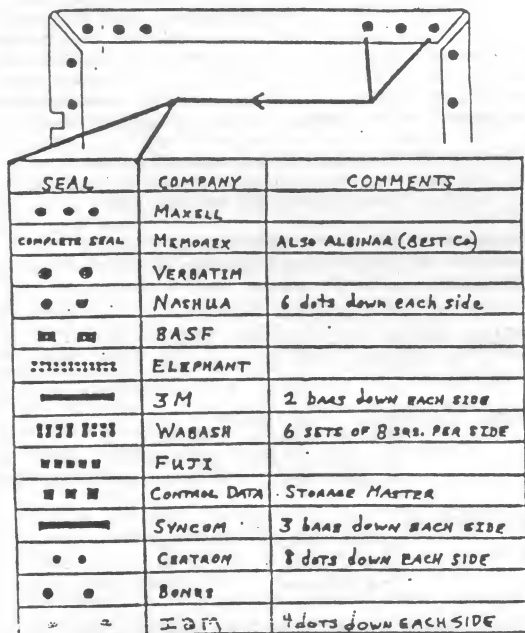 SEAL COMPANY COMMENTS
MAXELL
COMPLETE SEAL MEMOREX ALSO ALBINAR (BEST CO)
VERBATIM
NASHUA 6 dots down each side
BASF
ELEPHANT
3M 2 BARS down EACH SIDE
WABASH 6 SETS OF 8 SQS. PER SIDE
FUJI
CONTROL DATA STORAGE MASTER
SYNCOM 3 BARS down EACH SIDE
CENTRON 8 dots down EACH SIDE
BONUS
IBM 4 dots down EACH SIDE